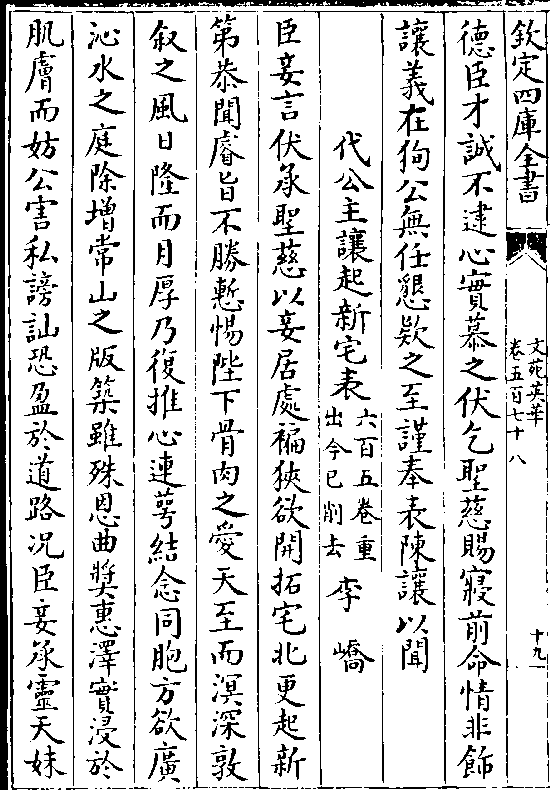 欽定四庫全書
文苑英華
卷五百七十八
十九
德臣才誠不逮心實慕之伏乞聖慈賜寢前命情非飾
讓義在徇公無任懇欵之至謹奉表陳讓以聞
代公主讓起新宅表六百五卷重出今已削去 李嶠
臣妾言伏承聖慈以妾居處褊狹欲開拓宅北更起新
第恭聞睿旨不勝慙惕陛下骨肉之愛天至而溟深敦
叙之風日隆而月厚乃復推心連萼結念同胞方欲廣
沁水之庭除增常山之版築雖殊恩曲奬惠澤實浸於
肌膚而妨公害私謗訕恐盈於道路况臣妾承靈天妹